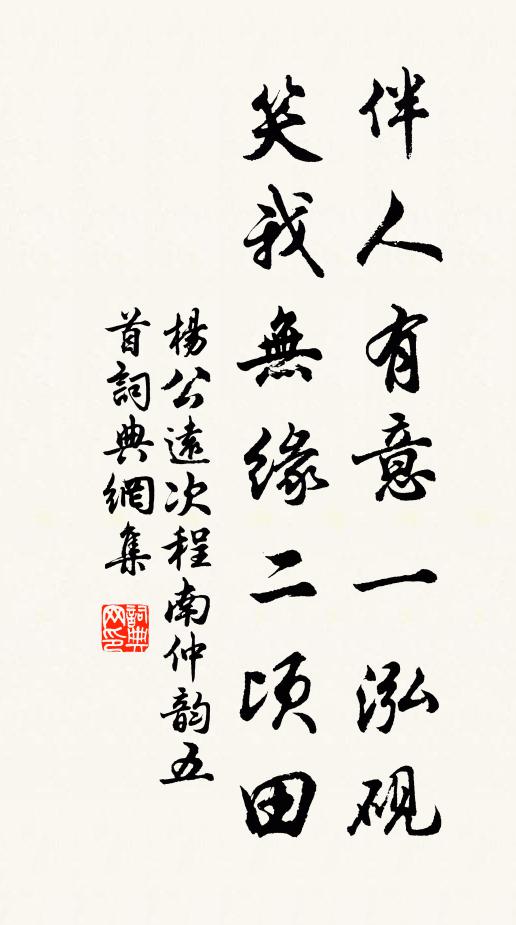 伴人有意一泓硯
笑我無緣二頃田
楊公遠次程南仲韵五
首詞典網集
詞典
网印